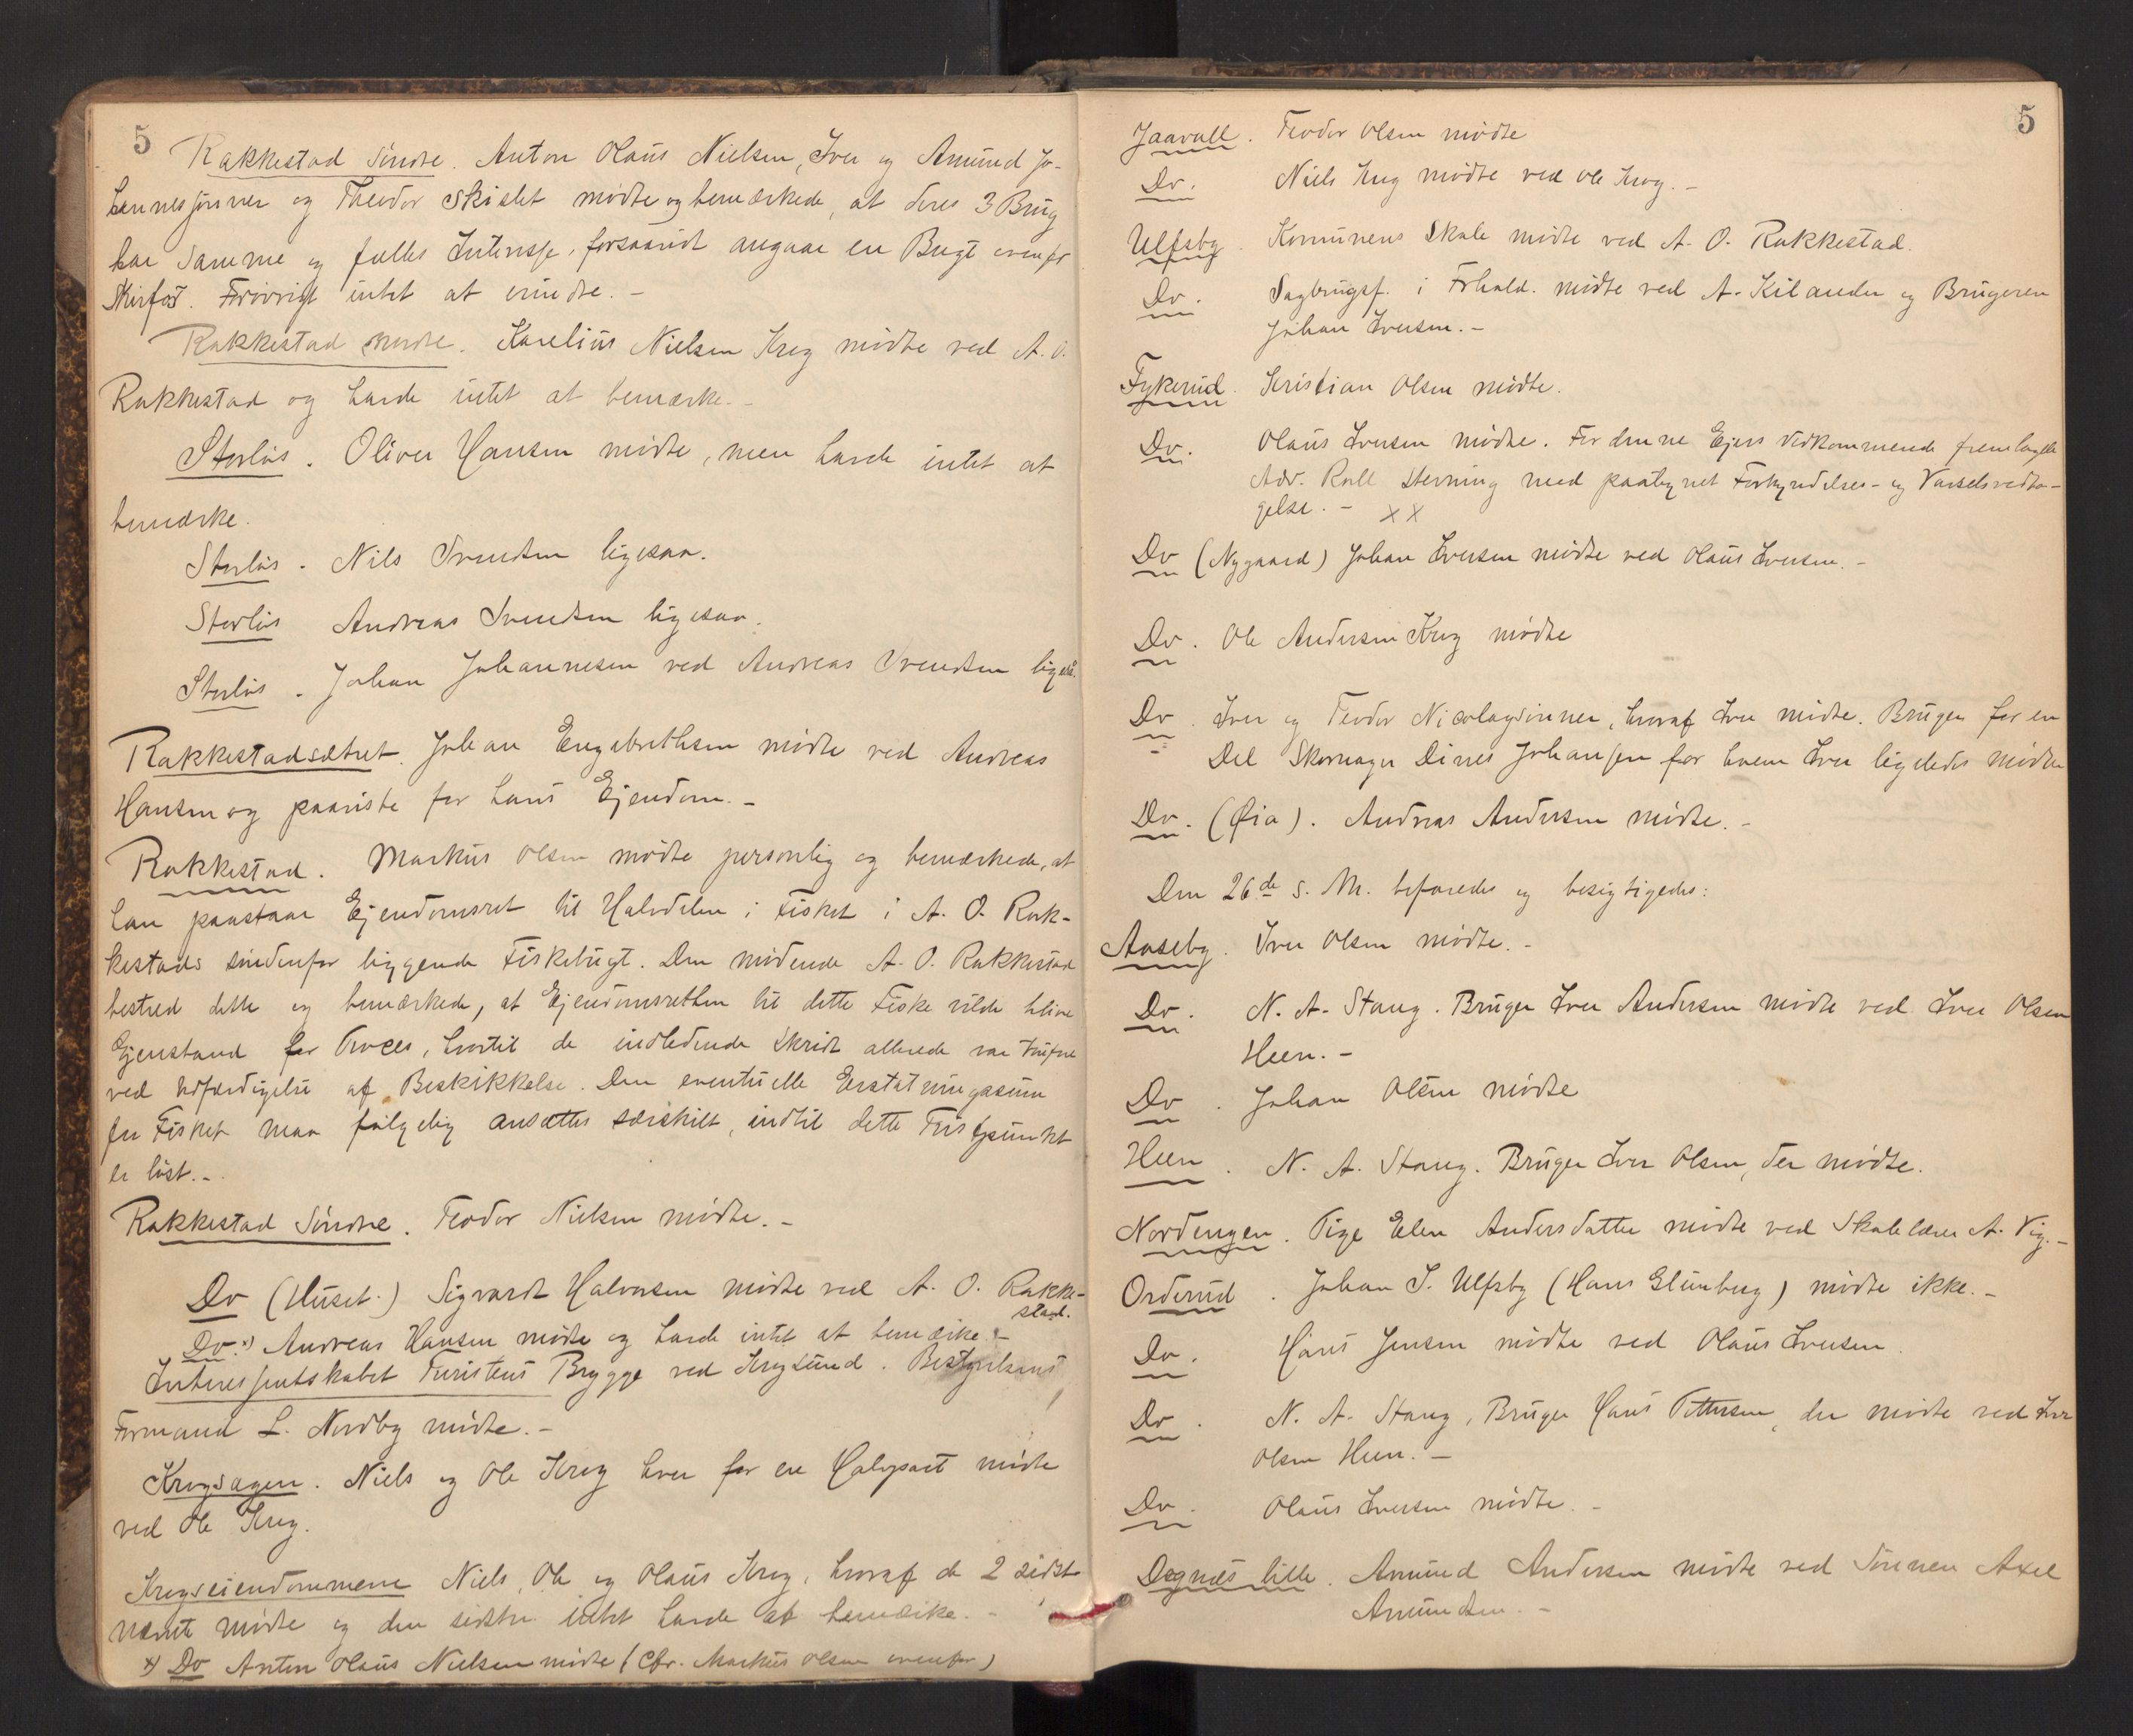 5
Rakkestad Søndre. Anton Olaus Nielsen, Iver og Amund Jo-
hannesønner og Theodor Skislet mødte og bemærkede, at deres 3 Brug
har samme og fælles Interesse, forsaavidt angaar en Bugt ovenfor
Forøvrigt intet at erindre. –
Rakkestad nordre. Karelius Nielsen Krog mødte ved A. O.
Rakkestad og havde intet at bemærke. –
Storløs. Oliver Hansen mødte, men havde intet at
bemærke.
Storløs. Nils Svendsen ligesaa.
Storløs Andreas Svendsen ligesaa.
Storløs. Johan Johannesen ved Andreas Svendsen ligesaa.
Rakkestadsætret. Johan Engebrethsen mødte ved Andreas
Hansen og paaviste for hans Ejendom. –
Rakkestad. Markus Olsen mødte personlig og bemærkede, at
han paastaar Ejendomsret til Halvdelen i Fisket i A. O. Rak-
kestads søndenfor liggende Fiskebugt. Den mødende A. O. Rakkestad
bestred dette og bemærkede, at Ejendomsretten til dette Fiske vilde blive
Gjenstand for Proces, hvortil de indledende Skridt allerede var trufne
ved Udfærdigelse af Beskikkelse. Den eventuelle Erstatningssum
for Fisket maa følgelig ansættes særskilt, indtil dette Tvistepunkt
er løst. –
Rakkestad Søndre. Teodor Nielsen mødte. –
Do (Huset.) Sigvardt Halvorsen mødte ved A. O. Rakke-
stad.
Do. x) Andreas Hansen mødte og havde intet at bemærke. –
Interessentskabet Turistens Brygge ved Krogsund. Bestyrelsens
Formand L. Nordby mødte. –
Krogsagen. Niels og Ole Krog hver for en Halvpart mødte
ved Ole Krog.
Krogseiendommene Niels, Ole og Olaus Krog, hvoraf de 2 sidst
nævnte mødte og den sidste intet havde at bemærke. –
x) Do Anton Olaus Nielsen mødte (Cfr. Markus Olsen ovenfor)
5
Jaavall. Teodor Olsen mødte
Do. Niels Krog mødte ved Ole Krog. –
Ulfsby. Kommunens Skole mødte ved A. O. Rakkestad.
Do. Sagbrugsf. i Frhald. mødte ved A. Kilander og Brugeren
Johan Iversen. –
Fykerud. Kristian Olsen mødte.
Do. Olaus Iversen mødte. For denne Ejers Vedkommende fremlagde
Adv. Roll Stevning med paategnet Forkyndelses- og Varselsvedta-
gelse. – x x
Do (Nygaard) Johan Iversen mødte ved Olaus Iversen. –
Do. Ole Andersen Krog mødte
Do. Iver og Teodor Nicolaysønner, hvoraf Iver mødte. Bruger for en
Del Skomager Dines Johansen for hvem Iver ligeledes mødte
Do. (Øia). Andreas Andersen mødte. –
Den 26de s. M. befaredes og besigtigedes:
Aaseby. Iver Olsen mødte. –
Do. N. A. Stang. Bruger Iver Andersen mødte ved Iver Olsen
Heen. –
Do. Johan Olsen mødte
Heen. N. A. Stang. Bruger Iver Olsen, der mødte.
Nordengen. Pige Elen Andersdatter mødte ved Skolelærer A. Vig. –
Orderud. Johan J. Ulfsby (Hans Glünberg) mødte ikke. –
Do. Hans Jensen mødte ved Olaus Iversen.
Do. N. A. Stang, Bruger Hans Pettersen, der mødte ved Iver
Olsen Heen. –
Do. Olaus Iversen mødte. –
Degnæs lille. Amund Andersen mødte ved Sønnen Axel
Amundsen. –